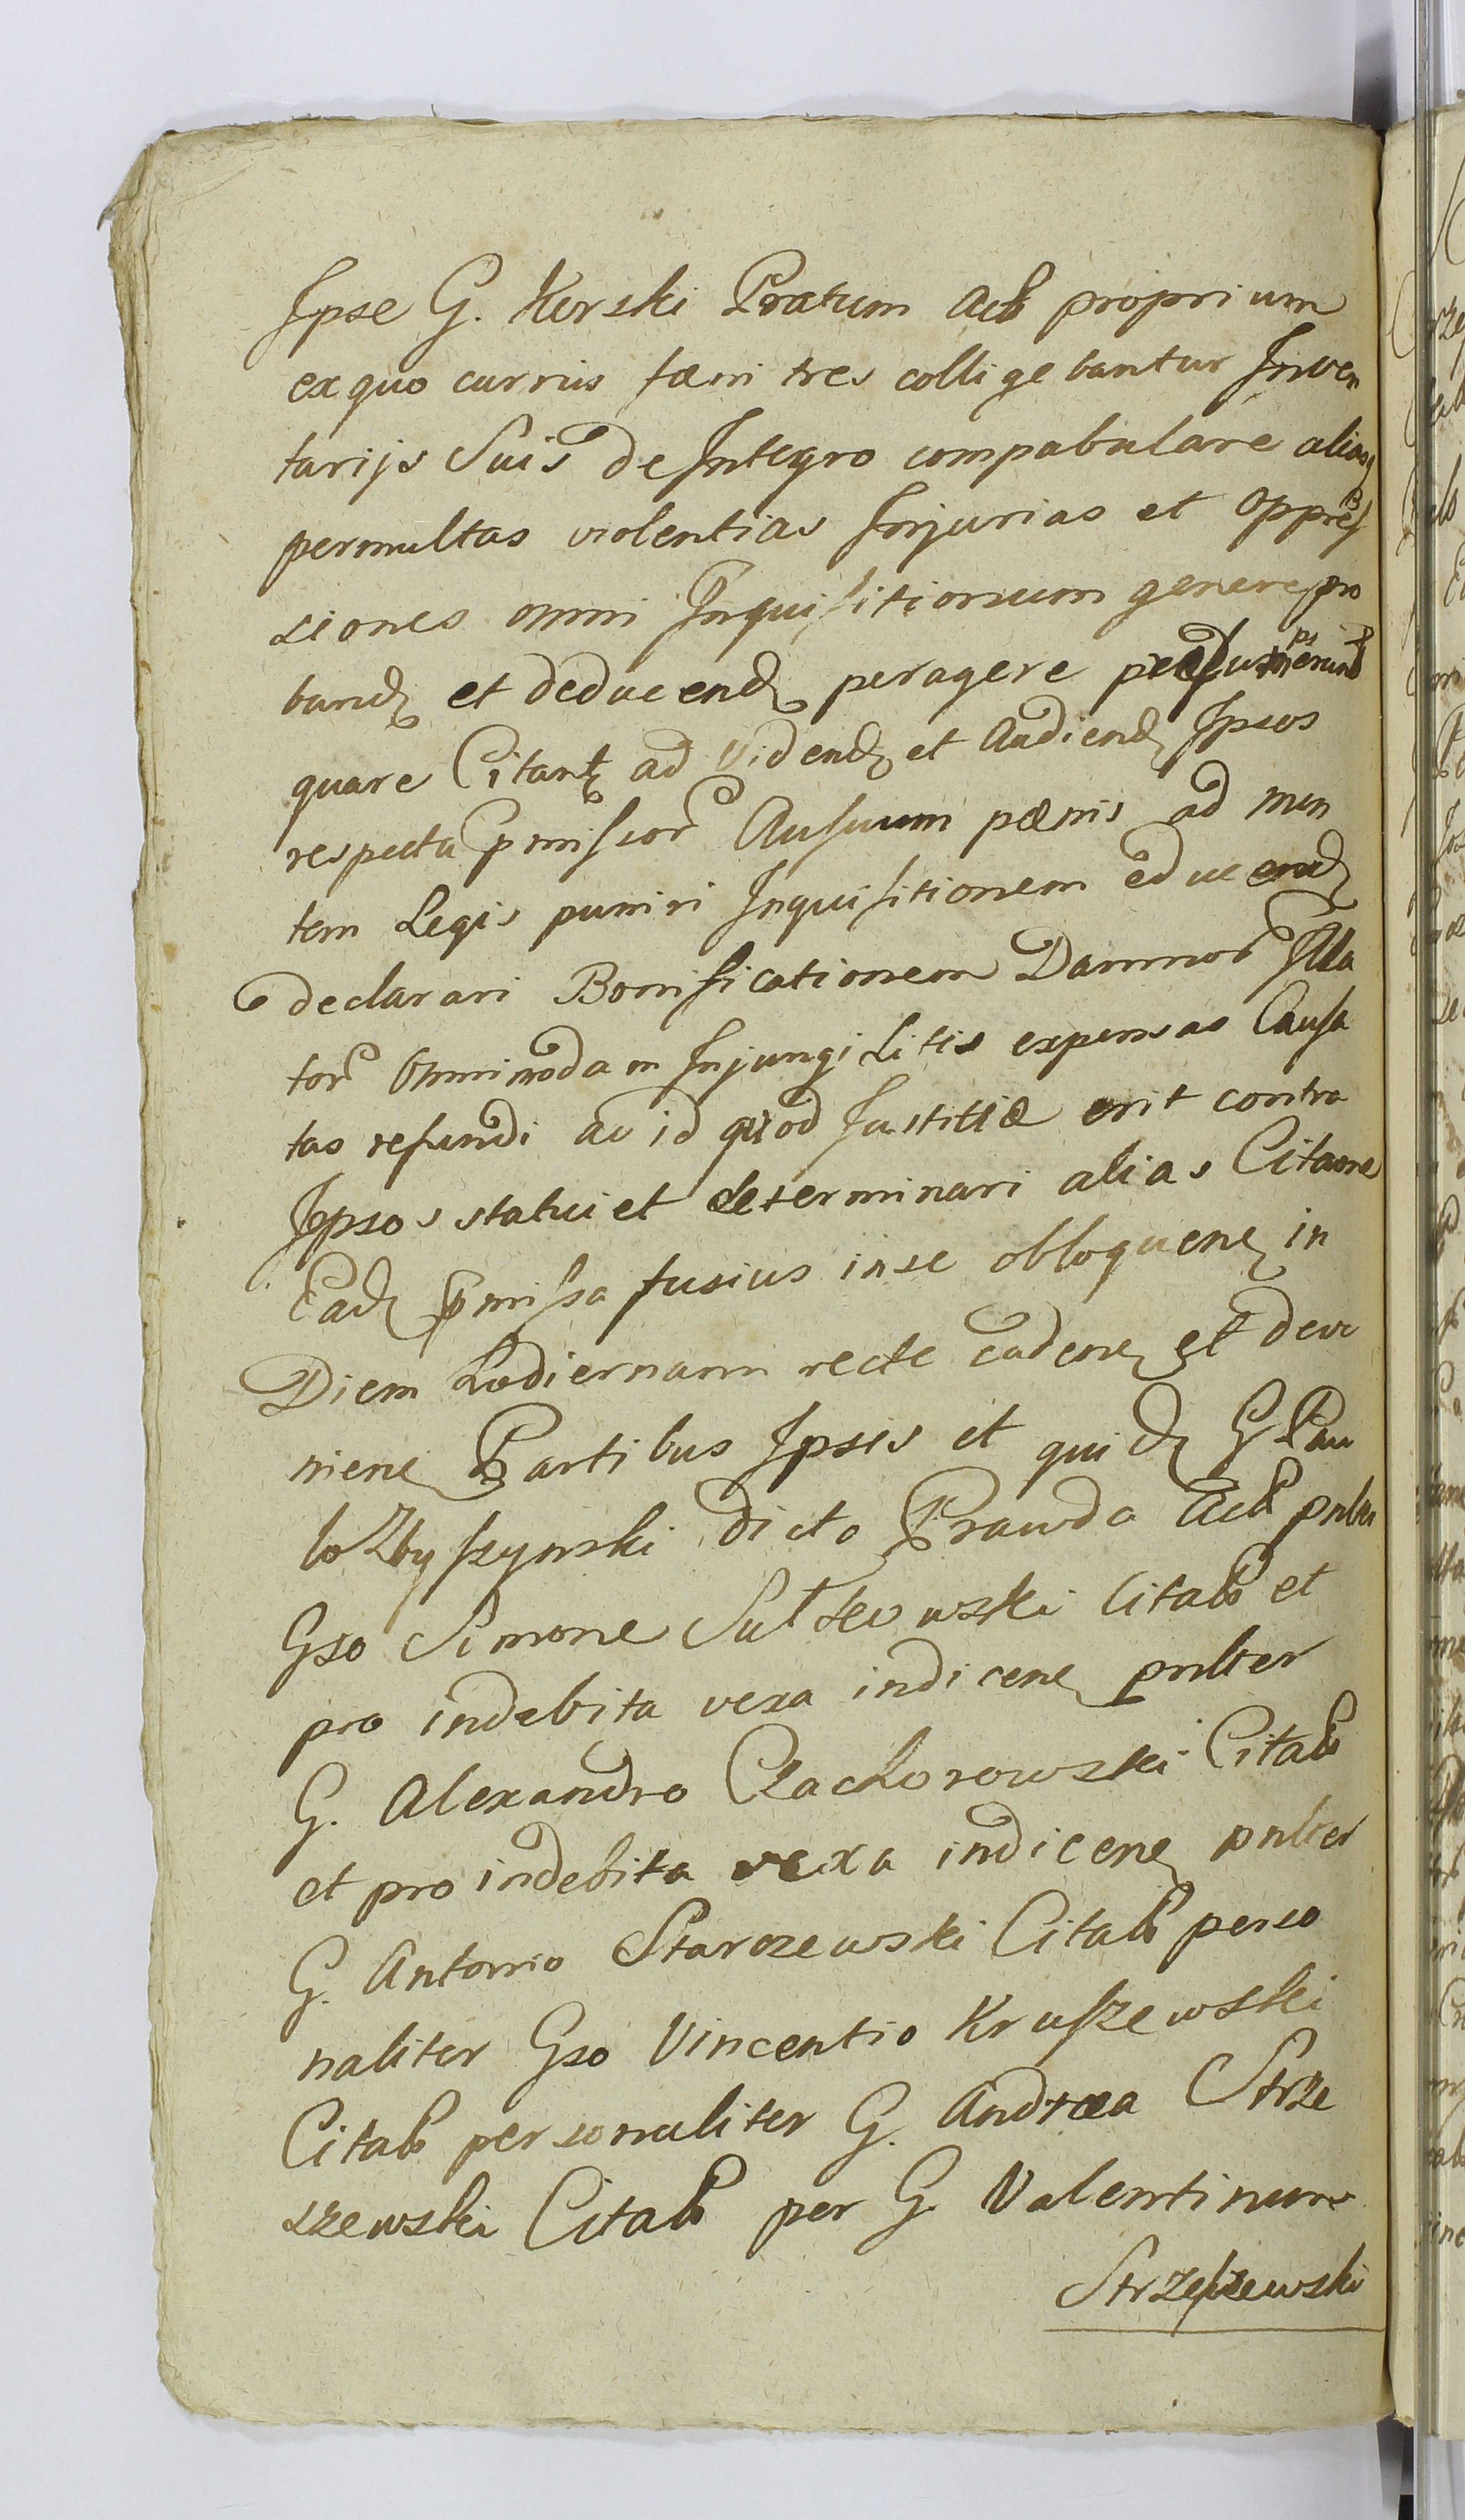 Ipse G. Kerski Pratum Actb proprium
ex quo currus fæni tres colligebantur Inven
tarijs Suis de Integro compabulare aliasq
permultas violentias Injurias et oppres
siones omni Inquisitionum genere pro
band et deducend peragere
quare Citant ad Vidend et Audiend Ipsos
respectu pmissor Ausuum pænis ad men
tem Legis puniri Inquisitionem educend
declarari Bonificationem Damnor Illa
tor Omnimodam Injungi Litis expensas Causa
tas refundi ac id quod Justitiæ erit contra
Ipsos statui et determinari alias Citaone
Ead pmissa fusius in se obloquen in
Diem hodiernam recte caden et deve
nien Partibus Ipsis et quid G Pau
lo Zbyszynski dicto Prawda Actb pnlter
Gso Simone Sutkowski Citatb et
pro indebita vexa indicen pnlter
G. Alexandro Czachorowski Citatb
et pro indebita vexa indicen pnlter
G. Antonio Starozewski Citatb perso
naliter Gso Vincentio Kruszewski
Citatb personaliter G. Andræa Strze
szewski Citatb per G. Valentinum
Strzeszewski